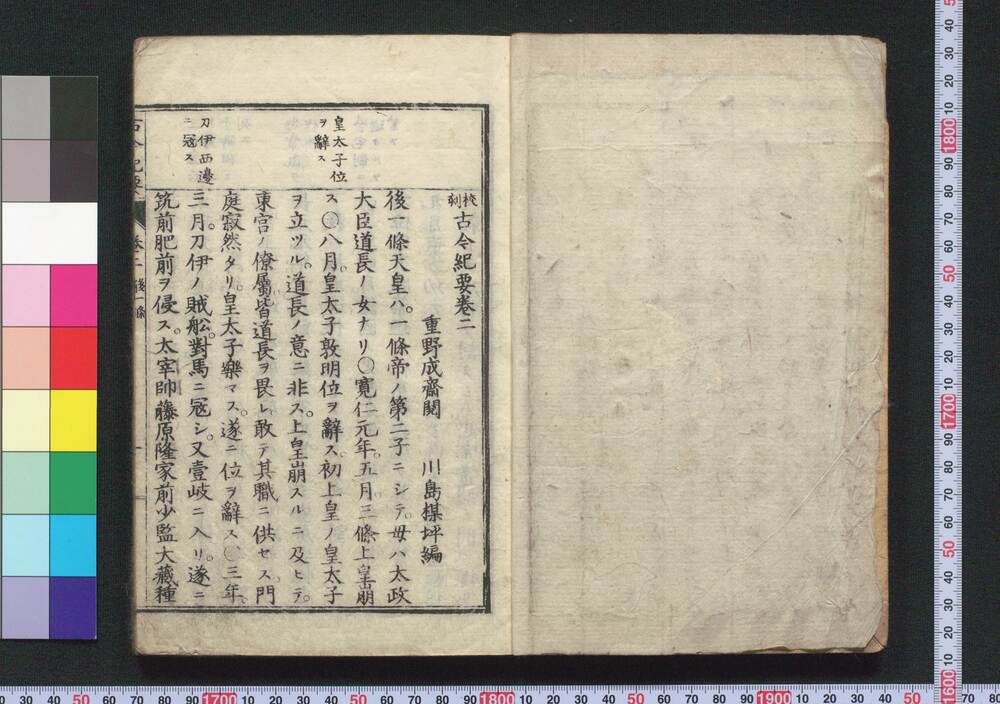 校刻 古今紀要卷二
重野成齋閲　川島楳坪編
後一條天皇ハ。一條帝ノ第二子ニシテ。母ハ太政
大臣道長ノ女ナリ〇寛仁元年。五月。三條上皇崩
ス〇八月。皇太子敦明位ヲ辭ス。初上皇ノ皇太子
ヲ立ツル。道長ノ意ニ非ス。上皇崩スルニ及ヒテ。
東宮ノ僚屬。皆道長ヲ畏レ。敢テ其職ニ供セス。門
庭寂然タリ。皇太子樂マス。遂ニ位ヲ辭ス〇三年。
三月。刀伊ノ賊舩。對馬ニ冦シ。又壹岐ニ入リ。遂ニ
筑前肥前ヲ侵ス。太宰帥藤原隆家前少監大藏種
皇太子位
ヲ辭ス
刀伊西邊
ニ冦ス
古今紀要 卷二 後一條 一
50 60 70 80 90 1600 10 20 30 40 50 60 70 80 90 1700 10 20 30 40 50 60 70 80 90 1800 10 20 30 40 50
30 40 50 60 70 80 90 1700 10 20 30 40 50 60 70 80 90 1800 10 20 30 40 50 60 70 80 90 1900 10 20 30 40 50 60 70 80